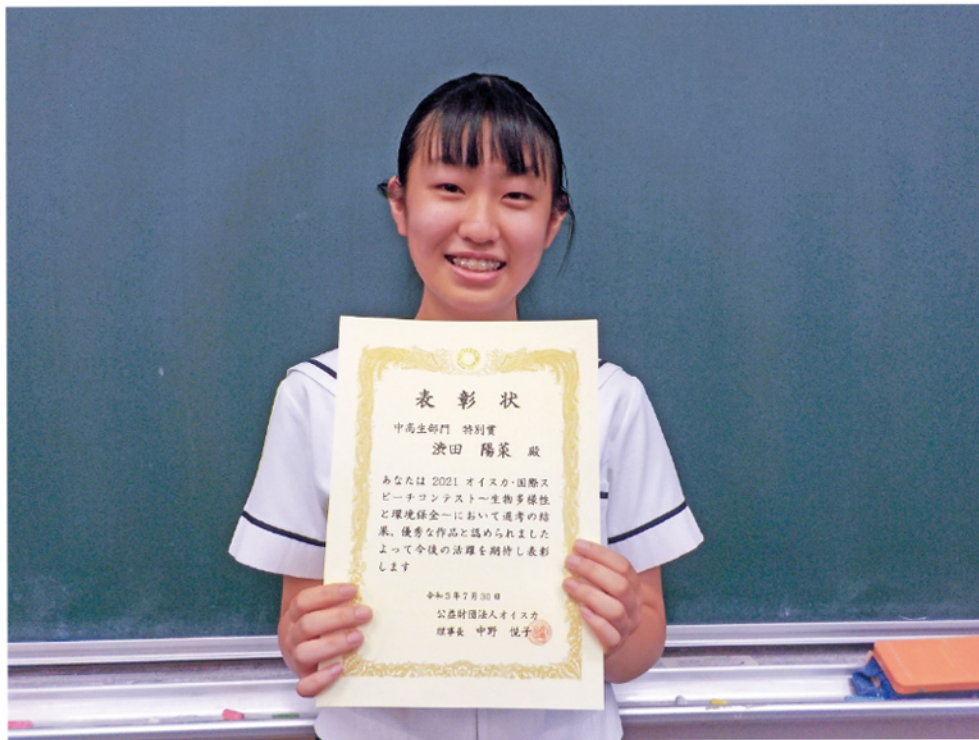 表彰状
中高生部門 特別賞
渋田 陽菜 殿
あなたは 2021 オイスカ・国際ス
ピーチコンテスト～生物多様性
と環境保全～において選考の結
果、優秀な作品と認められました
よって今後の活躍を期待し表彰
します
令和3年7月30日
公益財団法人オイスカ
理事長 中野 悦子